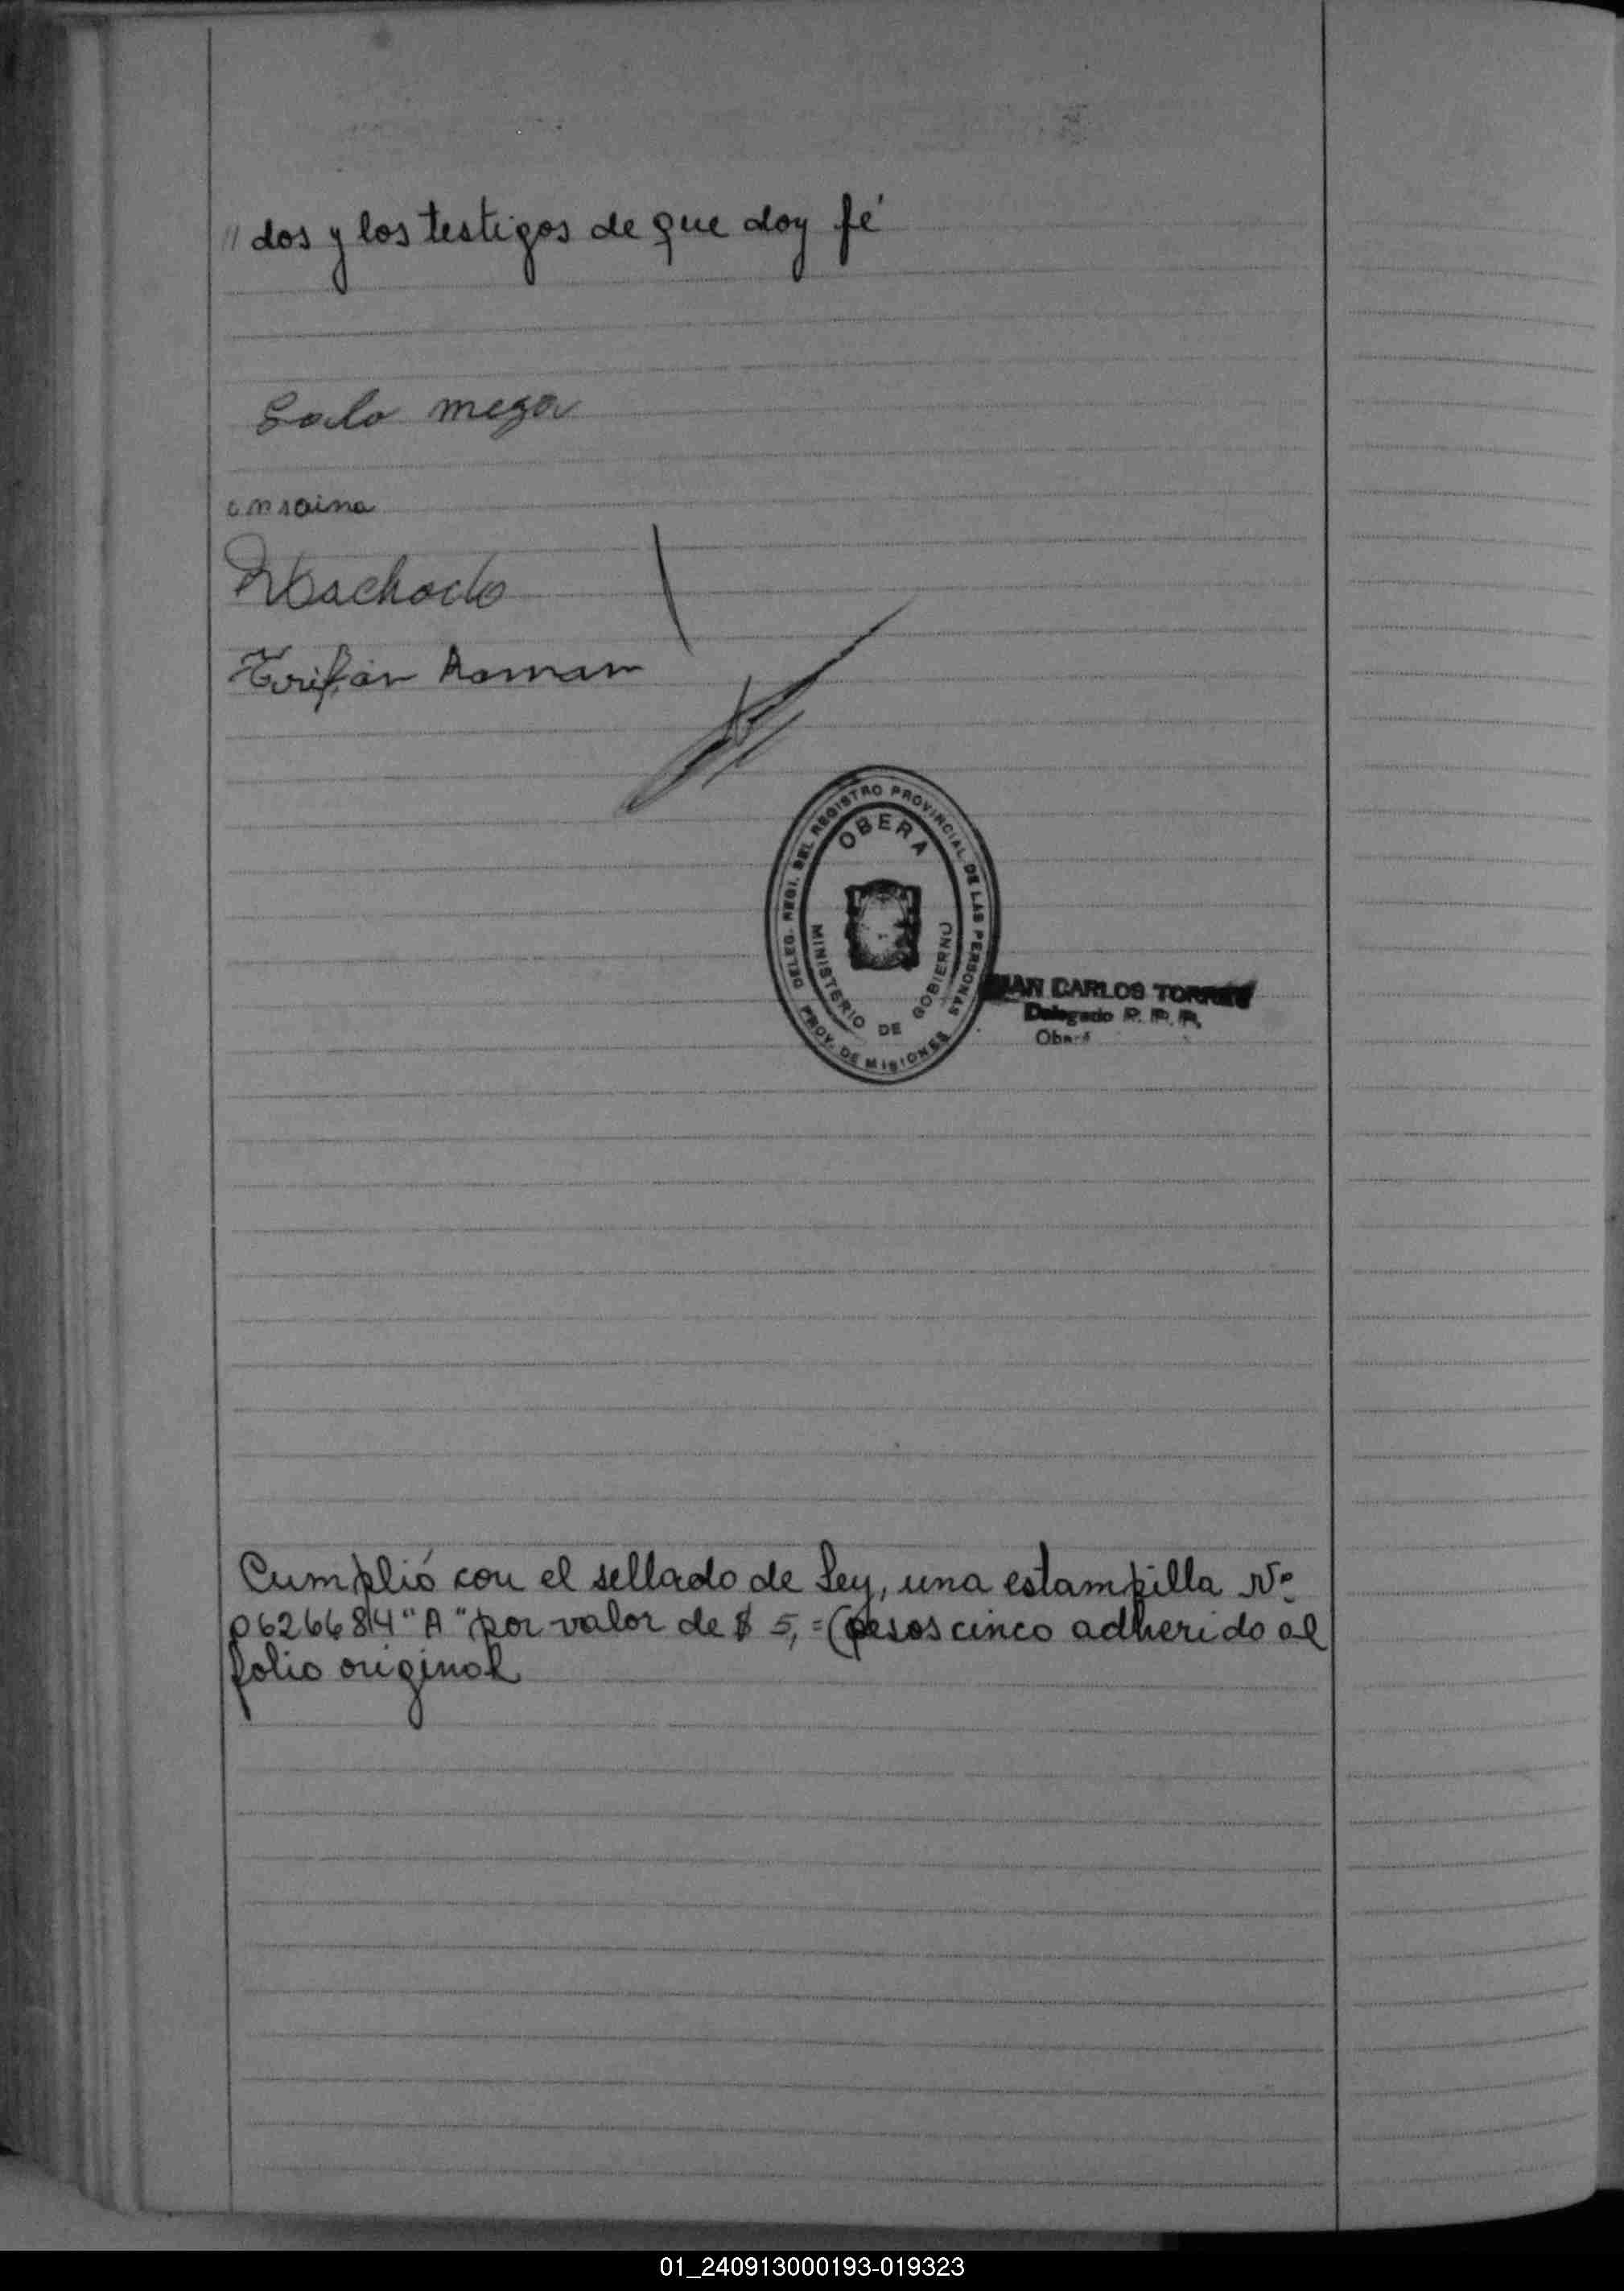 // dos y los testigos de que doy fé
meza
Machado
Román
DELEG. REGI. DEL REGISTRO PROVINCIAL DE LAS PERSONAS
OBERA
MINISTERIO DE GOBIERNO
PROV. DE MISIONES
JUAN CARLOS TORRES
Delegado R. P. P.
Oberá
Cumplió con el sellado de Ley, una estampilla Nº
0626684 "A" por valor de $ 5,= (pesos cinco adherido al
folio original
01_240913000193-019323